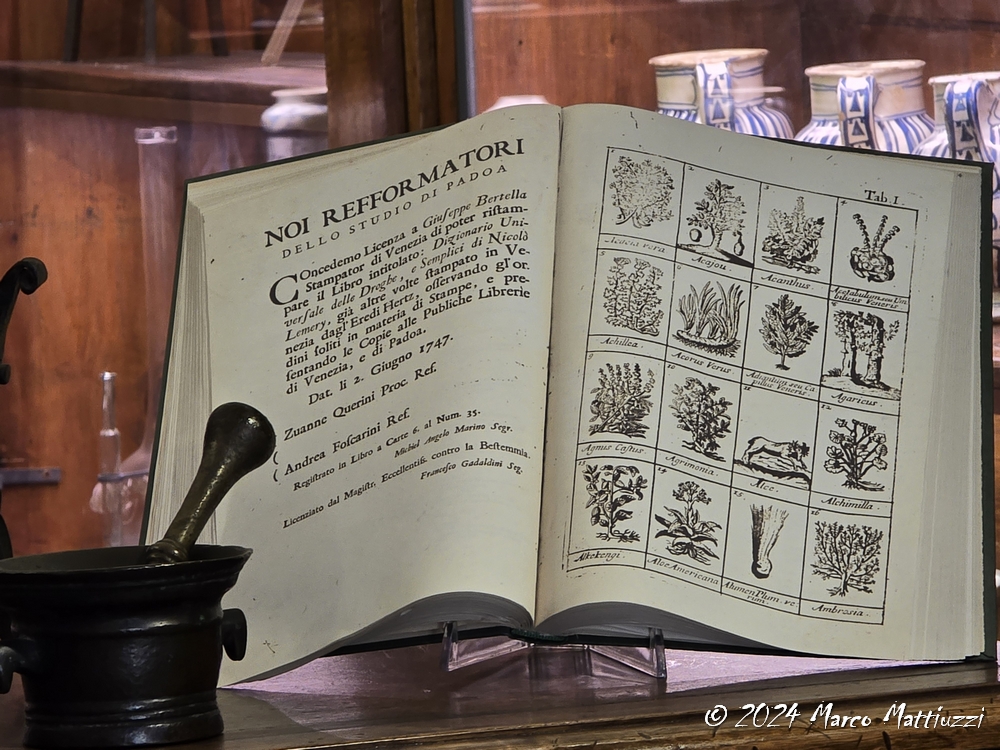 NOI REFFORMATORI
DELLO STUDIO DI PADOA
COncedemo Licenza a Giuseppe Bertella
Stampator di Venezia di poter ristam-
pare il Libro intitolato: Dizionario Uni-
versale delle Droghe, e Semplici di Nicolò
Lemery, già altre volte stampato in Ve-
nezia dagl'Eredi Hertz, osservando gl'or-
dini soliti in materia di Stampe, e pre-
sentando le Copie alle Publiche Librerie
di Venezia, e di Padoa.
Dat. li 2. Giugno 1747.
Zuanne Querini Proc. Ref.
( Andrea Foscarini Ref.
(
Registrato in Libro a Carte 6. al Num. 35.
Michiel Angelo Marino Segr.
Licenziato dal Magistr. Eccellentiss. contro la Bestemmia.
Francesco Gadaldini Seg.
Tab. I.
2 3 4
Acacia vera. Acajou. Acanthus. Acetabulum seu Um
bilicus Veneris
5 6 7 8
Achillea. Acorus Verus. Adiantum seu Ca
pillus Veneris. Agaricus.
9 10 11 12
Agnus Castus. Agrimonia. Alce. Alchimilla.
13 14 15 16
Alkekengi. Aloe Americana Alumen Plum. ve
rum. Ambrosia.
© 2024 Marco Mattiuzzi